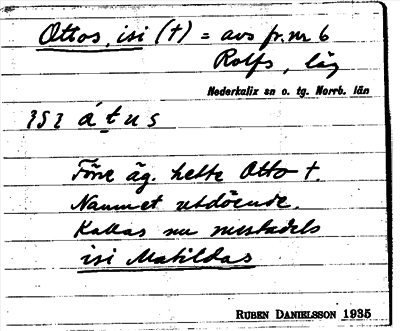 Ottos, isi (†) = avs fr. nr 6
Rolfs, läg
Nederkalix sn o. tg. Norrb. län
ısı átus
Förre äg. hette Otto †.
Namnet utdöende.
Kallas nu mestadels
isi Matildas
RUBEN DANIELSSON 1935